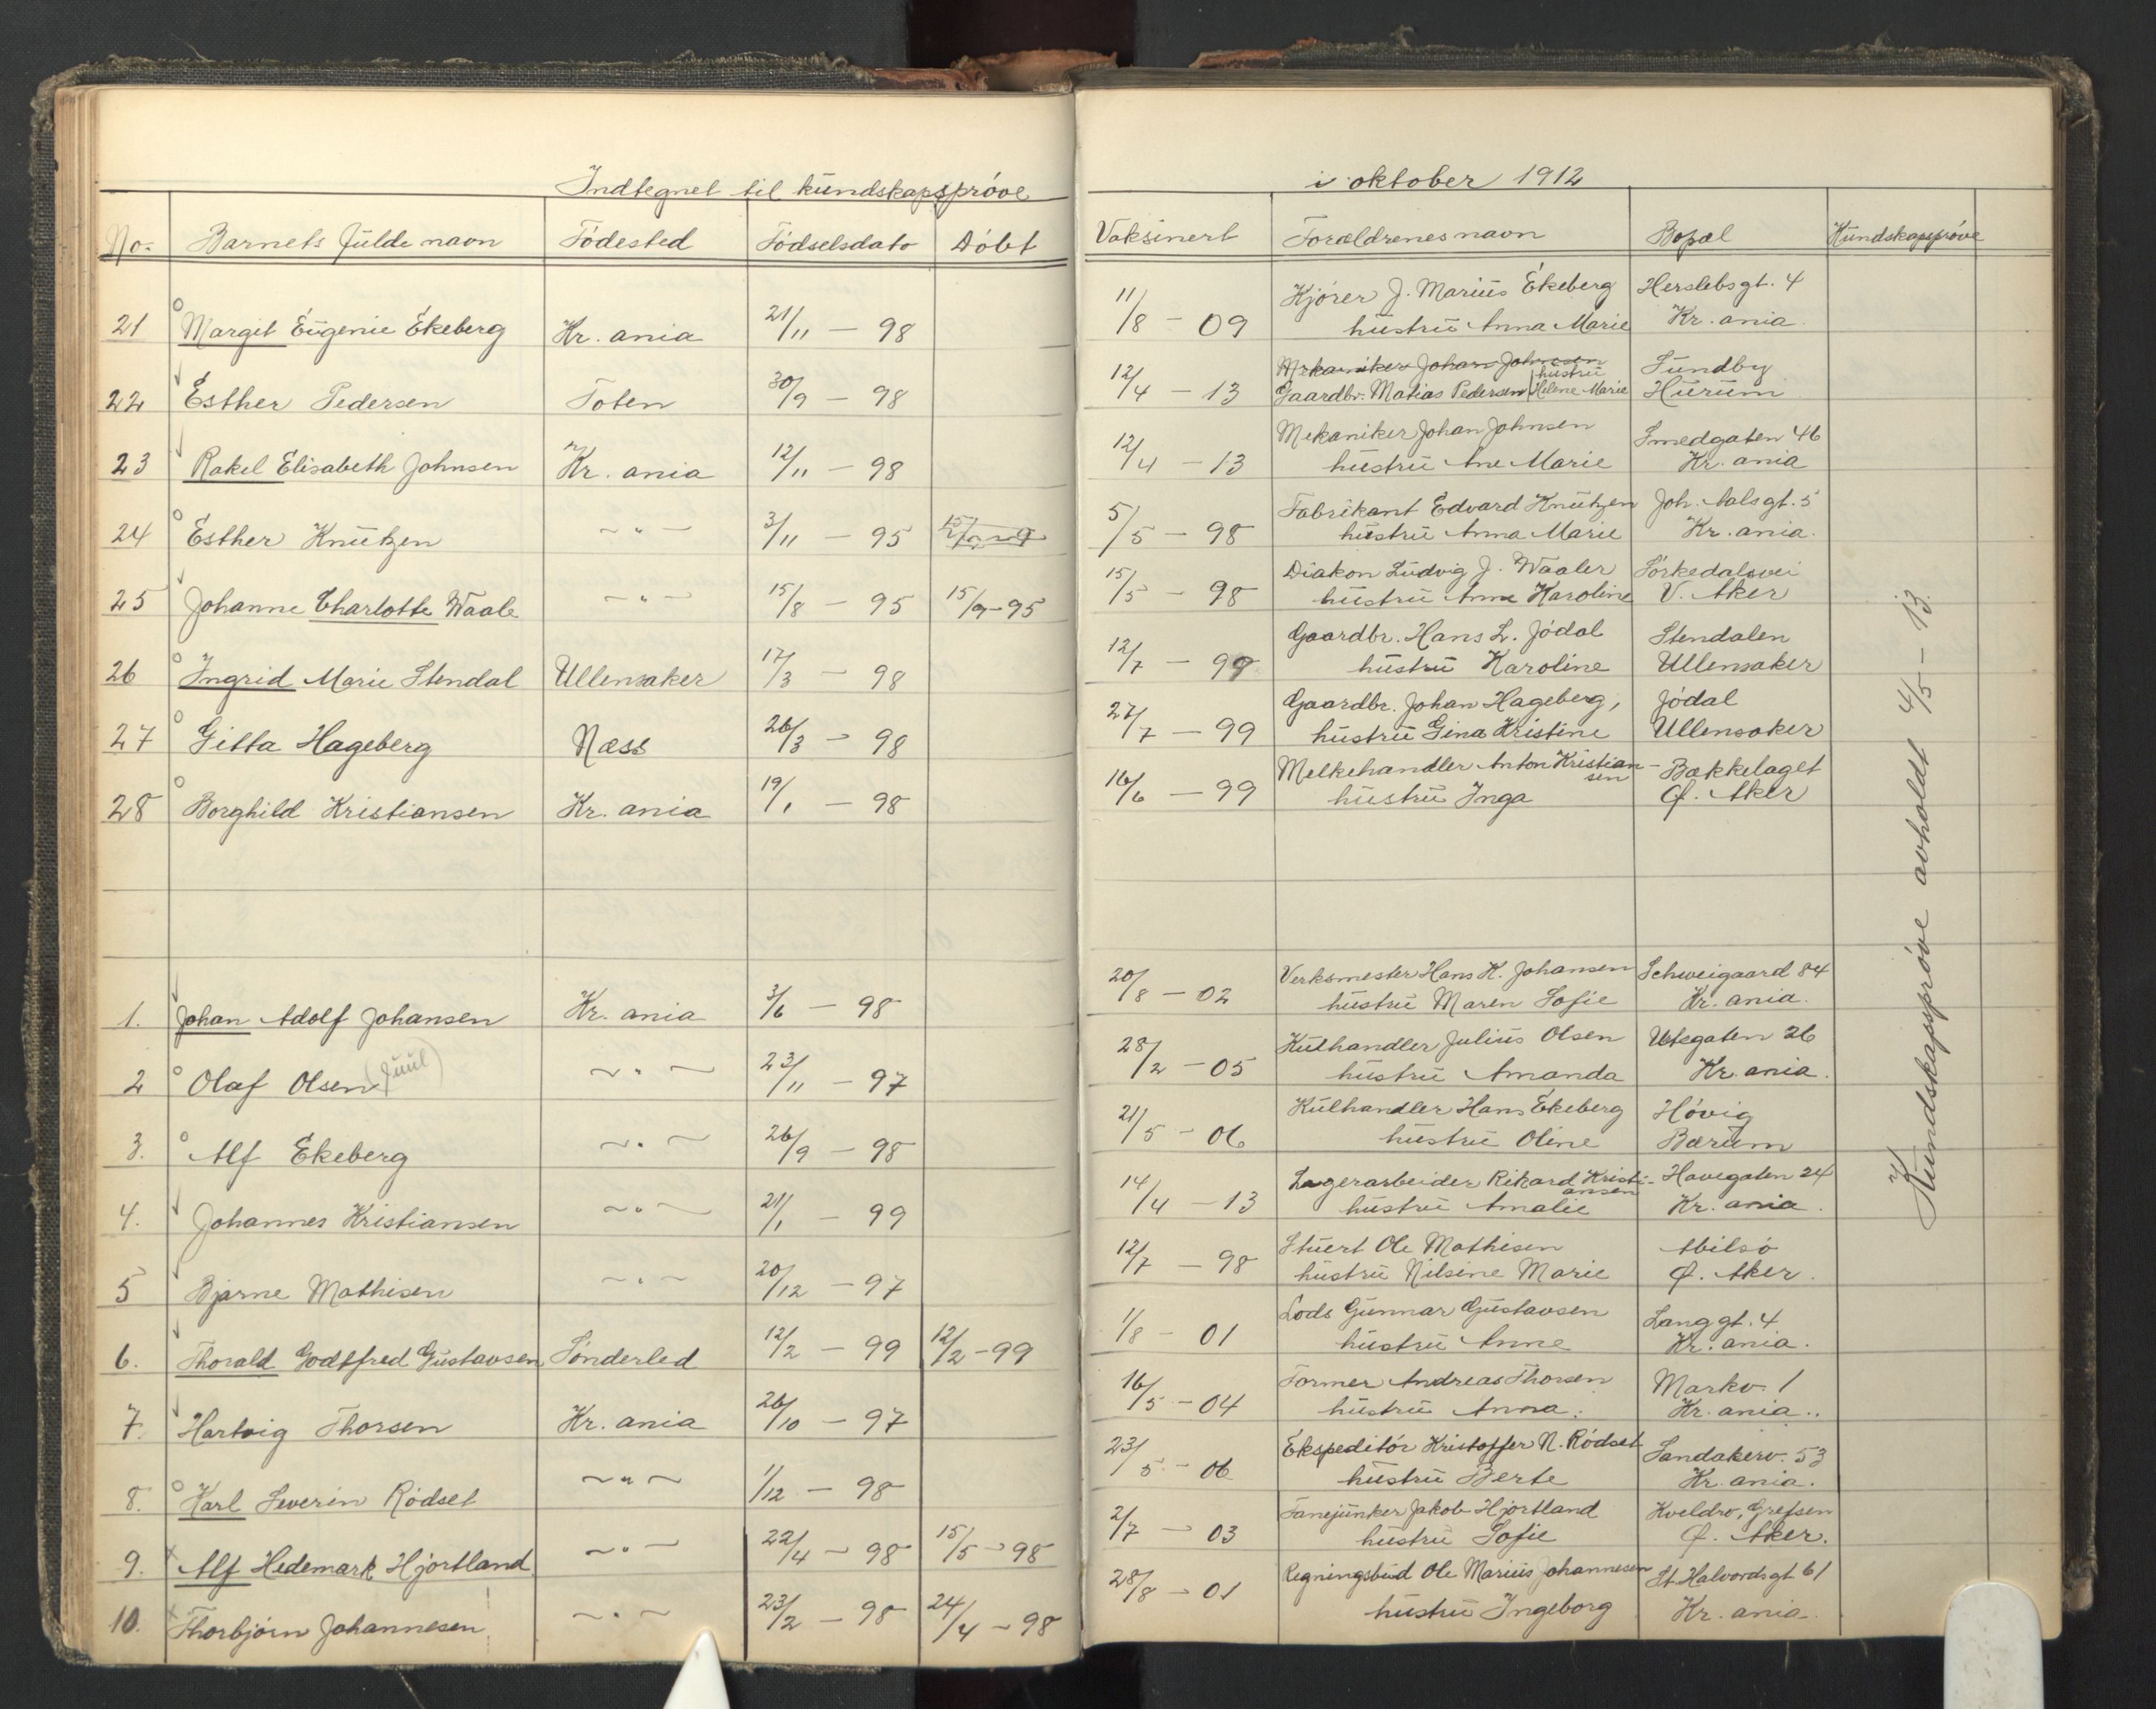 Indtegnet til kundskapsprøve i oktober 1912
No. Barnets fulde navn Födested Födselsdato Döbt Vaksinert Forældrenes navn Bopæl Kundskapsprøve
21 Margit Eugenie Ekeberg Kr. ania 21/11 – 98 11/8 – 09 Kjörer J. Marius Ekeberg Herslebsgt. 4
hustru Anna Marie Kr. ania.
22 Esther Pedersen Toten 30/9 – 98 12/4 – 13 Mekaniker Johan Johnsen Sundby
Gaardbr. Matias Pedersen hustru Helene Marie Hurum
23 Rakel Elisabeth Johnsen Kr. ania 12/11 – 98 12/4 – 13 Mekaniker Johan Johnsen Smedgaten 46
hustru Ane Marie Kr. ania
24 Esther Knutzen – " – 3/11 – 95 5/5 – 98 Fabrikant Edvard Knutzen Joh. Aalsgt. 5
hustru Anna Marie Kr. ania.
25 Johanne Charlotte Waale – " – 15/8 – 95 15/9 – 95 15/5 – 98 Diakon Ludvig J. Waaler Sörkedalsvei
hustru Anne Karoline V. Aker
26 Ingrid Marie Stendal Ullensaker 17/3 – 98 12/7 – 99 Gaardbr. Hans L. Jödal Stendalen
hustru Karoline Ullensaker
27 Gitta Hageberg Næss 26/3 – 98 27/7 – 99 Gaardbr. Johan Hageberg, Jödal
hustru Gina Kristine Ullensaker
28 Borghild Kristiansen Kr. ania 19/1 – 98 16/6 – 99 Melkehandler Anton Kristiansen Bækkelaget
hustru Inga Ø. Aker
1. Johan Adolf Johansen Kr. ania 3/6 – 98 20/8 – 02 Verksmester Hans K. Johansen Schweigaard 84
hustru Maren Sofie Kr. ania.
2 Olaf Olsen (Juul) – " – 23/11 – 97 28/2 – 05 Kulhandler Julius Olsen Urtegaten 26
hustru Amanda Kr. ania.
3. Alf Ekeberg – " – 26/9 – 98 21/5 – 06 Kulhandler Hans Ekeberg Hövig
hustru Oline Bærum
4. Johannes Kristiansen – " – 21/1 – 99 14/4 – 13 Lagerarbeider Rikard Kristiansen Havegaten 24
hustru Amalie Kr. ania.
5 Bjarne Mathisen – " – 20/12 – 97 12/7 – 98 Stuert Ole Mathisen Abilsö
hustru Nilsine Marie Ø. Aker.
6. Thorald Godtfred Gustavsen Sönderled 12/2 – 99 12/2 – 99 1/8 – 01 Lods Gunnar Gustavsen Langgt. 4
hustru Anne Kr. ania.
7. Hartvig Thorsen Kr. ania 26/10 – 97 16/5 – 04 Former Andreas Thorsen Markv. 1
hustru Anna. Kr. ania.
8. Karl Severin Rödset – " – 1/12 – 98 23/5 – 06 Ekspeditör Kristoffer N. Rödset Sandakerv. 53
hustru Berte Kr. ania.
9. Alf Hedemark Hjortland – " – 22/4 – 98 15/5 – 98 2/7 – 03 Fanejunker Jakob Hjortland Kveldro, Grefsen
hustru Sofie Ø. Aker.
10. Thorbjörn Johannesen – " – 23/2 – 98 24/4 – 98 28/8 – 01 Regningsbud Ole Marius Johannesen St. Halvordsgt 61
hustru Ingeborg Kr. ania.
Kundskapsprøve avholdt 4/5 – 13.